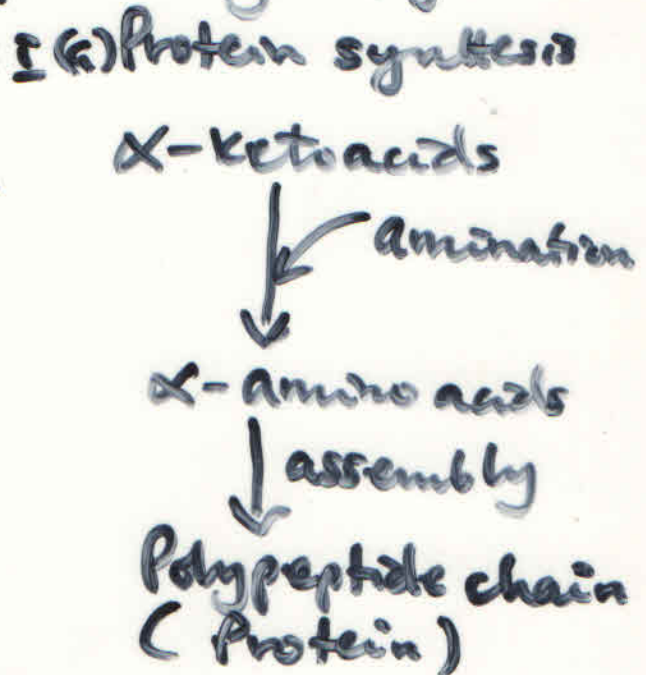 I (a) Protein synthesis
α-ketoacids
amination
α-amino acids
assembly
Polypeptide chain
(Protein)